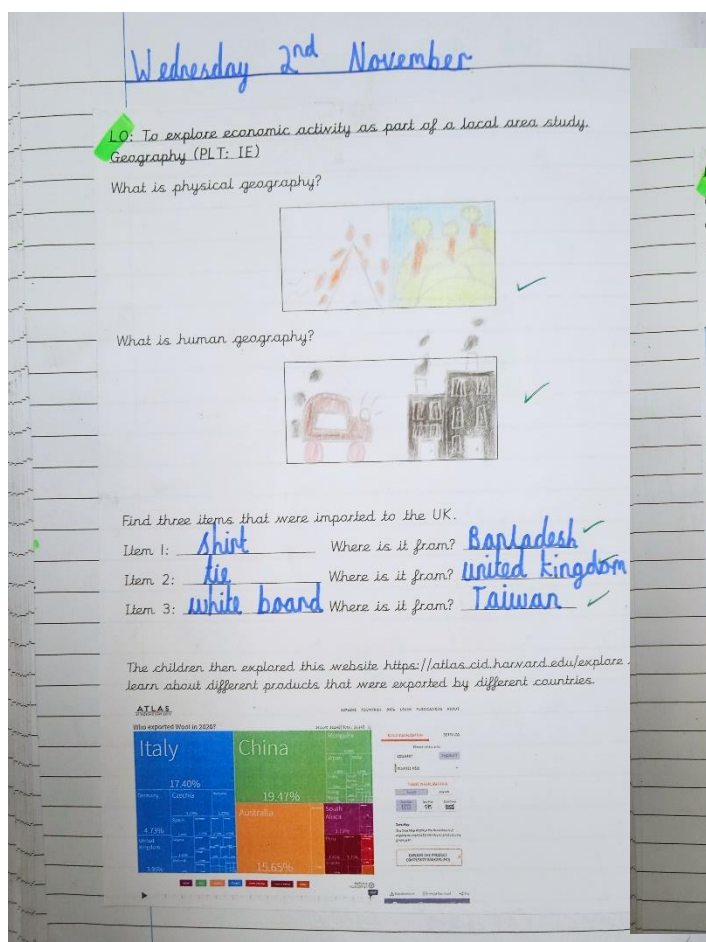 Wednesday 2nd November
LO: To explore economic activity as part of a local area study.
Geography (PLT: IE)
What is physical geography?
What is human geography?
Find three items that were imported to the UK.
Item 1: shirt Where is it from? Banladesh
Item 2: tie Where is it from? united kingdom
Item 3: white board Where is it from? Taiwan
The children then explored this website https://atlas.cid.harvard.edu/explore
learn about different products that were exported by different countries.
ATLAS
Who exported Wool in 2020?
Italy
17.40%
China
19.47%
Mongolia
Germany
4.73%
Czechia
United
Kingdom
Australia
15.65%
South
Africa